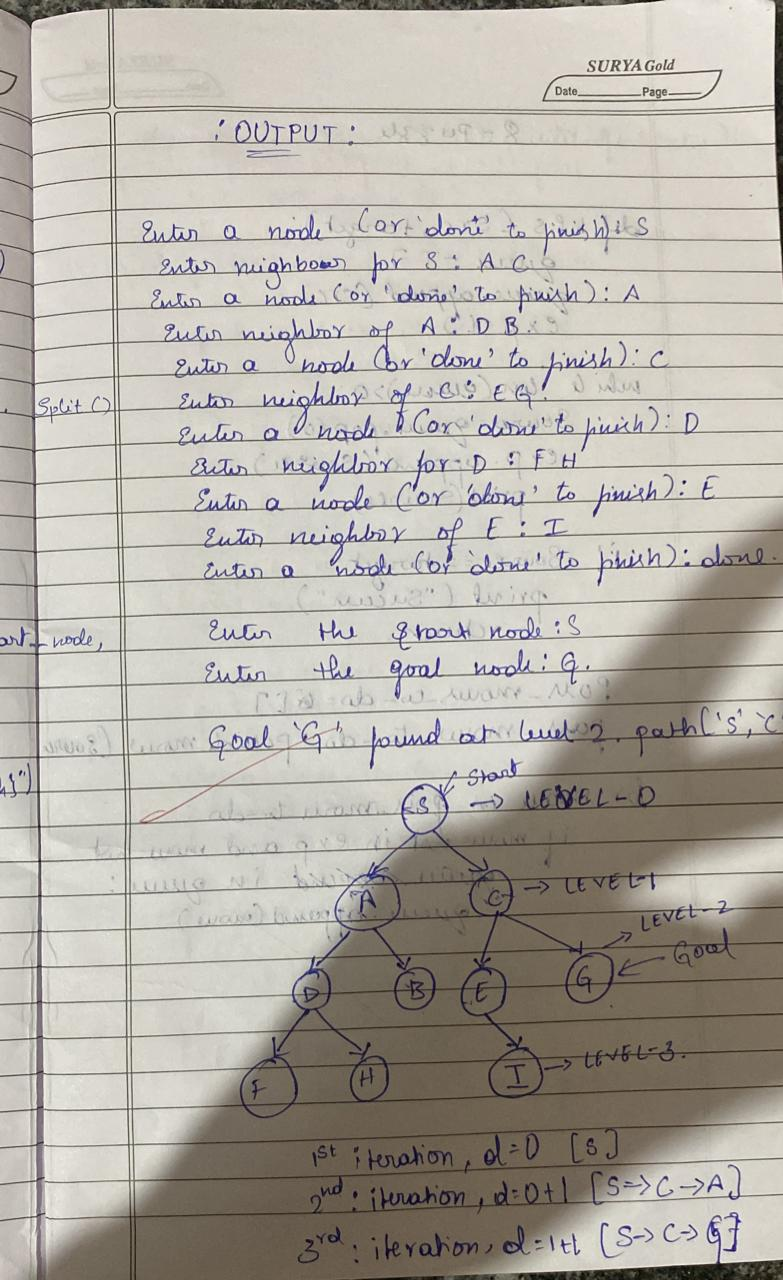 SURYA Gold
Date Page
: OUTPUT :
Enter a node (or 'done' to finish): S
Enter neighbour for S : A C
Enter a node (or 'done' to finish): A
Enter neighbor of A : D B.
Enter a node (or 'done' to finish): C
Split ()
Enter neighbor of C : E G.
Enter a node (or 'done' to finish): D
Enter neighbor for D : F H
Enter a node (or 'done' to finish): E
Enter neighbor of E : I
Enter a node (or 'done' to finish): done.
art_node,
Enter the start node : S
Enter the goal node : G.
Goal 'G' found at level 2. path['S', 'C
}")
Start
S → LEVEL-0
A C → LEVEL-1
LEVEL-2
D B E G ← Goal
F H I → LEVEL-3.
1st : iteration, d=0 [S]
2nd : iteration, d=0+1 [S→C→A]
3rd : iteration, d=1+1 [S→C→G]